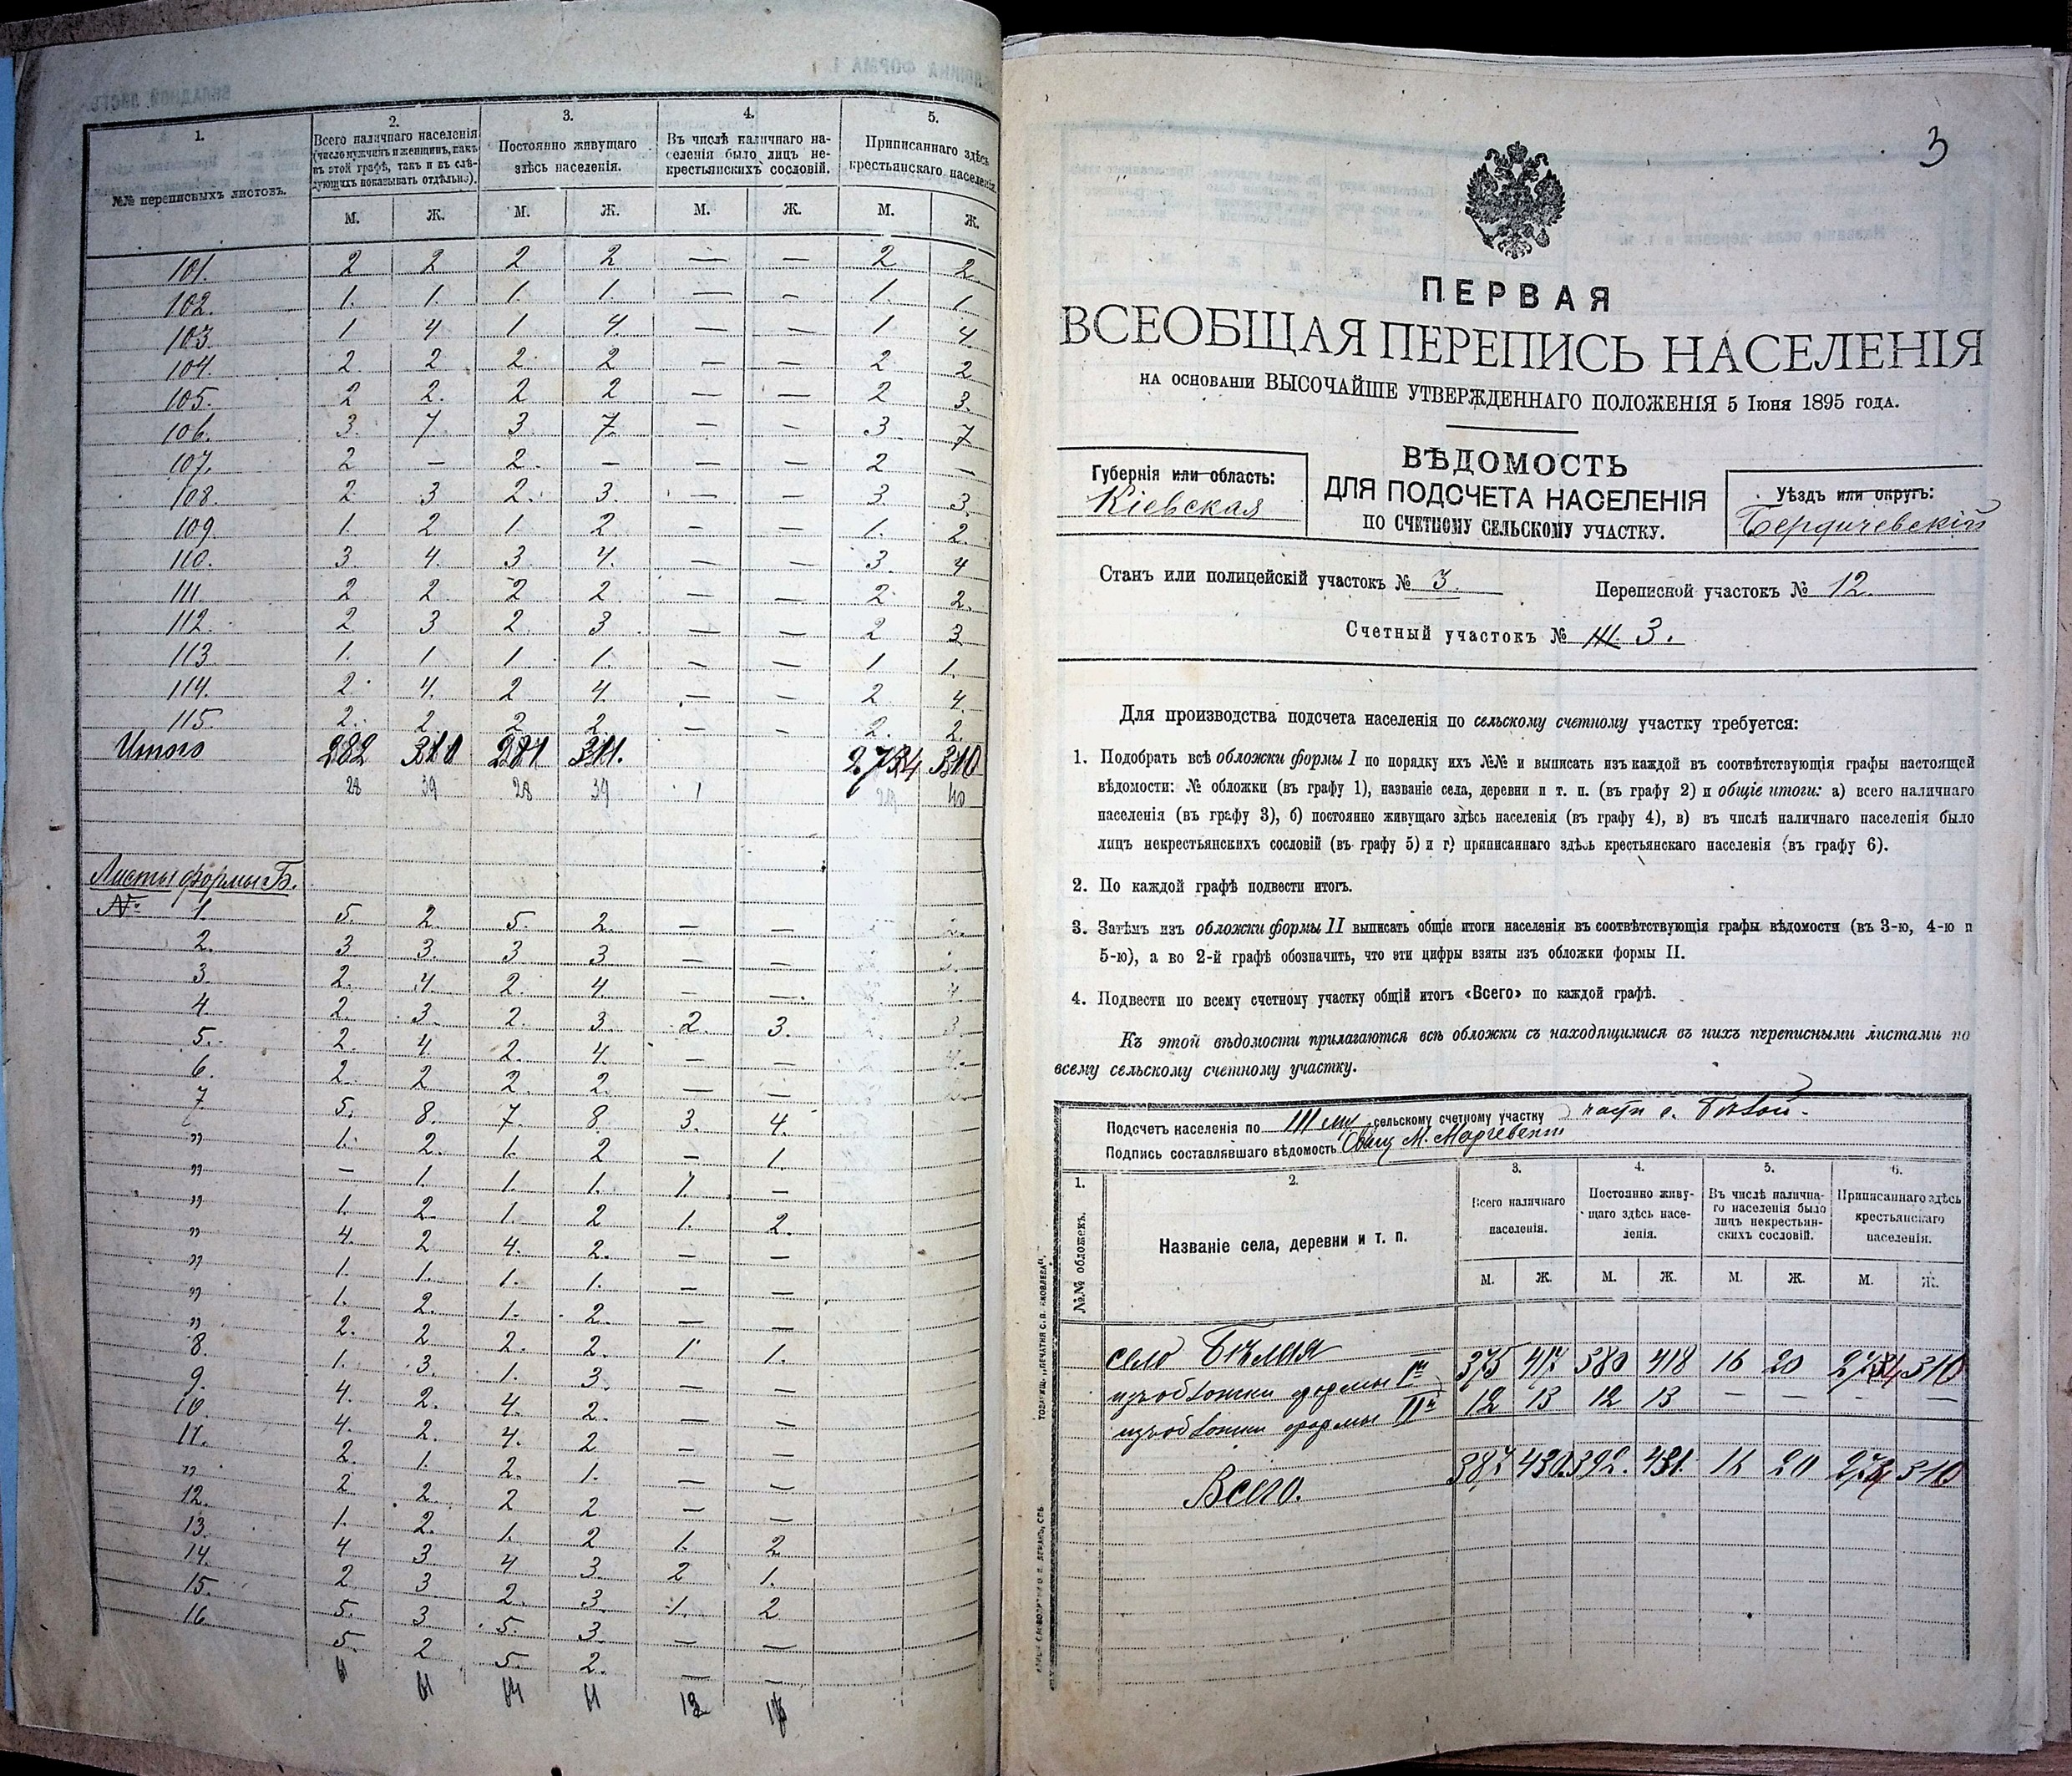 1.
2.
3.
4.
5.
№№ переписныхъ листовъ.
Всего наличнаго населенія
(число мужчинъ и женщинъ, какъ
въ этой графѣ, такъ и въ слѣ-
дующихъ показывать отдѣльно).
Постоянно живущаго
здѣсь населенія.
Въ числѣ наличнаго на-
селенія было лицъ не-
крестьянскихъ сословій.
Приписаннаго здѣсь
крестьянскаго населенія.
М. Ж. М. Ж. М. Ж. М. Ж.
101. 2 2 2 2 — — 2 2.
102. 1. 1. 1. 1. — – 1. 1.
103. 1 4 1 4. — — 1 4.
104. 2. 2 2. 2 — — 2. 2
105. 2 2. 2 2 — — 2 3.
106. 3. 7. 3. 7. — – 3. 7
107. 2 — 2. — — — 2 —
108. 2. 3 2. 3. — — 3. 3.
109. 1. 2. 1. 2. — — 1. 2.
110. 3. 4. 3. 4. — — 3. 4
111. 2 2. 2 2. — — 2. 2.
112. 2. 3 2. 3. — — 2 3
113. 1. 1 1. 1. — — 1 1.
114. 2. 4. 2 4. — — 2 4.
115. 2. 2. 2. 2. — — 2. 2.
Итого 282 310 281 311. 310
28 39 28 39 1 29 40
Листы формы Б.
№ 1. 5. 2. 5. 2. — —
2. 3 3. 3. 3 — —
3. 2. 4. 2. 4. — —.
4. 2. 3. 2. 3. 2. 3.
5. 2. 4. 2. 4. — —
6. 2. 2 2. 2. — —
7. 5. 8. 7. 8. 3. 4.
" 1. 2. 1. 2 – 1.
" – 1. 1. 1. 1. –
" 1. 2. 1. 2 1. 2.
" 4. 2 4. 2. — —
" 1. 1. 1. 1. — —
" 1. 2. 1. 2. — —
" 2. 2 2. 2. 1 1.
8. 1. 3. 1. 3. — —
9. 4. 2. 4. 2. — —
10. 4. 2. 4. 2 — —
11. 2. 1. 2. 1. — —
" 2 2. 2 2. — —
12. 1. 2. 1. 2 1. 2
13. 4 3. 4 3. 2 1.
14. 2 3 2. 3. 1. 2
15. 5. 3 5. 3. — —
16. 5. 2 5. 2. — —
3
ПЕРВАЯ
ВСЕОБЩАЯ ПЕРЕПИСЬ НАСЕЛЕНІЯ
НА ОСНОВАНІИ ВЫСОЧАЙШЕ УТВЕРЖДЕННАГО ПОЛОЖЕНІЯ 5 Іюня 1895 года.
Губернія или область:
Кіевская
ВѢДОМОСТЬ
ДЛЯ ПОДСЧЕТА НАСЕЛЕНІЯ
ПО СЧЕТНОМУ СЕЛЬСКОМУ УЧАСТКУ.
Уѣздъ или округъ:
Бердичевскій
Станъ или полицейскій участокъ № 3. Переписной участокъ № 12.
Счетный участокъ № III. 3.
Для производства подсчета населенія по сельскому счетному участку требуется:
1. Подобрать всѣ обложки формы I по порядку ихъ №№ и выписать изъ каждой въ соотвѣтствующія графы настоящей
вѣдомости: № обложки (въ графу 1), названіе села, деревни и т. п. (въ графу 2) и общіе итоги: а) всего наличнаго
населенія (въ графу 3), б) постоянно живущаго здѣсь населенія (въ графу 4), в) въ числѣ наличнаго населенія было
лицъ некрестьянскихъ сословій (въ графу 5) и г) приписаннаго здѣсь крестьянскаго населенія (въ графу 6).
2. По каждой графѣ подвести итогъ.
3. Затѣмъ изъ обложки формы II выписать общіе итоги населенія въ соотвѣтствующія графы вѣдомости (въ 3-ю, 4-ю и
5-ю), а во 2-й графѣ обозначить, что эти цифры взяты изъ обложки формы II.
4. Подвести по всему счетному участку общій итогъ «Всего» по каждой графѣ.
Къ этой вѣдомости прилагаются всѣ обложки съ находящимися въ нихъ переписными листами по
всему сельскому счетному участку.
Подсчетъ населенія по III му сельскому счетному участку части с. Бѣлой.
Подпись составлявшаго вѣдомость
1.
2.
3.
4.
5.
6.
№№ обложекъ.
Названіе села, деревни и т. п.
Всего наличнаго
населенія.
Постоянно живу-
щаго здѣсь насе-
ленія.
Въ числѣ налична-
го населенія было
лицъ некрестьян-
скихъ сословій.
Приписаннаго здѣсь
крестьянскаго
населенія.
М. Ж. М. Ж. М. Ж. М. Ж.
село Бѣлая
изъ обложки формы I й 375 417 380 418 16 20 310
изъ обложки формы II й 12 13 12 13 — — —
Всего. 387. 430. 392. 431. 16 20 310